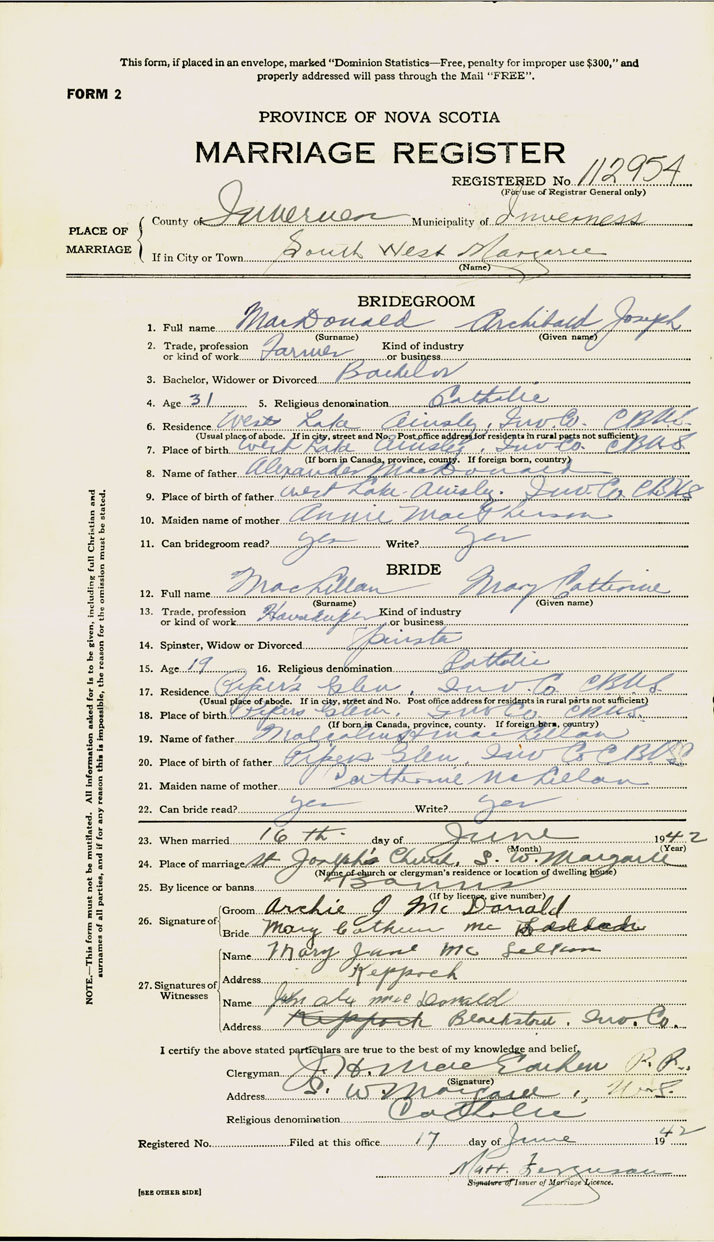 This form, if placed in an envelope, marked "Dominion Statistics—Free, penalty for improper use $300," and
properly addressed will pass through the Mail "FREE".
FORM 2
PROVINCE OF NOVA SCOTIA
MARRIAGE REGISTER
REGISTERED No. 112954
(For use of Registrar General only)
PLACE OF MARRIAGE
County of Inverness Municipality of Inverness
If in City or Town South West Margaree
(Name)
BRIDEGROOM
1. Full name MacDonald Archibald Joseph
(Surname) (Given name)
2. Trade, profession or kind of work Farmer Kind of industry or business
3. Bachelor, Widower or Divorced Bachelor
4. Age 31 5. Religious denomination Catholic
6. Residence West Lake Ainsly, Inv. Co. C.B.N.S.
(Usual place of abode. If in city, street and No. Post office address for residents in rural parts not sufficient)
7. Place of birth West Lake Ainsly, Inv. Co. C B N S
(If born in Canada, province, county. If foreign born, country)
8. Name of father Alexander MacDonald
9. Place of birth of father West Lake Ainsly. Inv Co. C.B.N.S
10. Maiden name of mother Annie MacPherson
11. Can bridegroom read? yes Write? yes
BRIDE
12. Full name MacLellan Mary Catherine
(Surname) (Given name)
13. Trade, profession or kind of work Housekeeper Kind of industry or business
14. Spinster, Widow or Divorced Spinster
15. Age 19 16. Religious denomination Catholic
17. Residence Piper's Glen, Inv. Co C.B.N.S.
(Usual place of abode. If in city, street and No. Post office address for residents in rural parts not sufficient)
18. Place of birth Pipers Glen, Inv Co. C.B.N.S.
(If born in Canada, province, county. If foreign born, country)
19. Name of father Malcolm MacLellan
20. Place of birth of father Pipers Glen, Inv Co C.B.N.S
21. Maiden name of mother Catherine McLellan
22. Can bride read? yes Write? yes
23. When married 16 th. day of June 1942
(Month) (Year)
24. Place of marriage St Joseph's Church, S. W. Margaree
(Name of church or clergyman's residence or location of dwelling house)
25. By licence or banns Banns
(If by licence, give number)
26. Signature of
Groom Archie J McDonald
Bride Mary Cathern Mc
27. Signatures of Witnesses
Name Mary Jane Mc
Address Keppoch
Name John Alex MacDonald
Address Keppoch Blackstone. Inv. Co.
I certify the above stated particulars are true to the best of my knowledge and belief.
Clergyman J. H. Mac Eachen P. P.
(Signature)
Address S. W. Margaree, N. S.
Religious denomination Catholic
Registered No. Filed at this office 17 day of June 1942
Matt. Ferguson
Signature of Issuer of Marriage Licence.
[SEE OTHER SIDE]
NOTE.—This form must not be mutilated. All information asked for is to be given, including full Christian and
surnames of all parties, and if for any reason this is impossible, the reason for the omission must be stated.